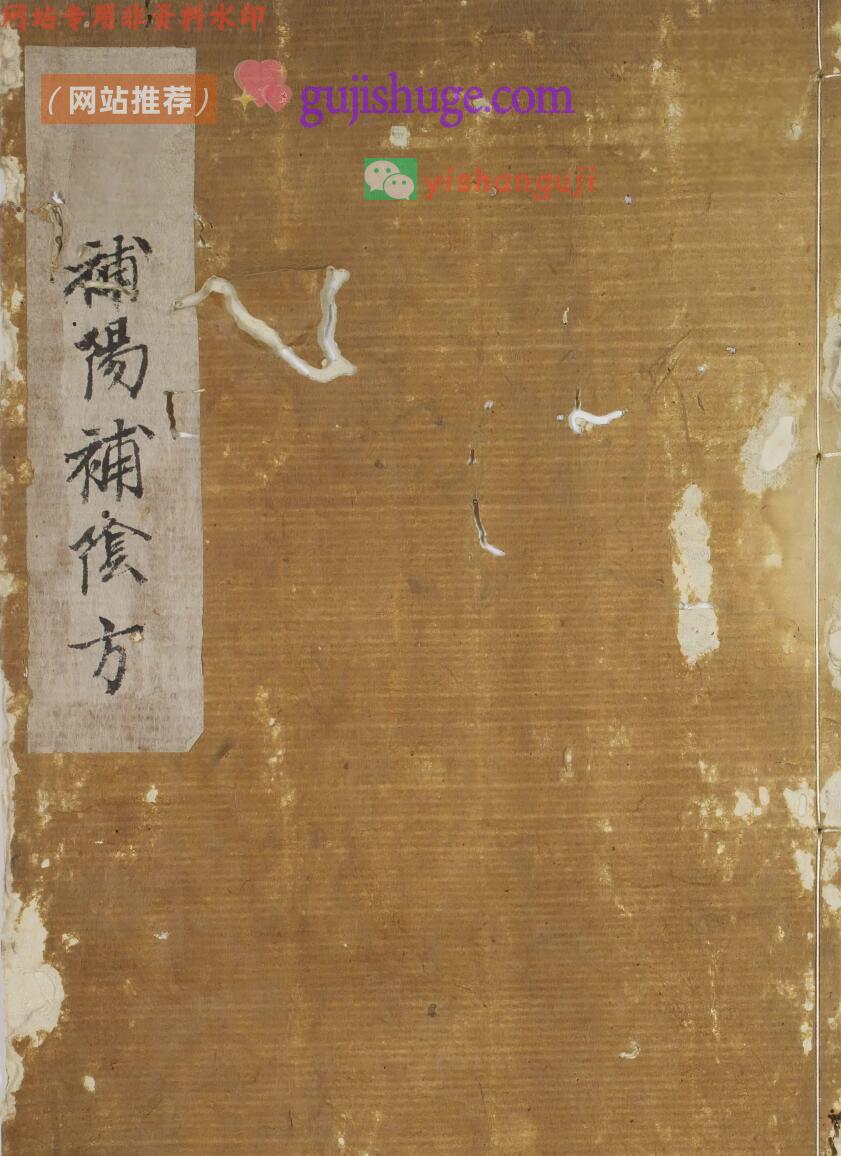 网站专用非资料水印
（网站推荐）
gujishuge.com
yishanguji
補陽補陰方